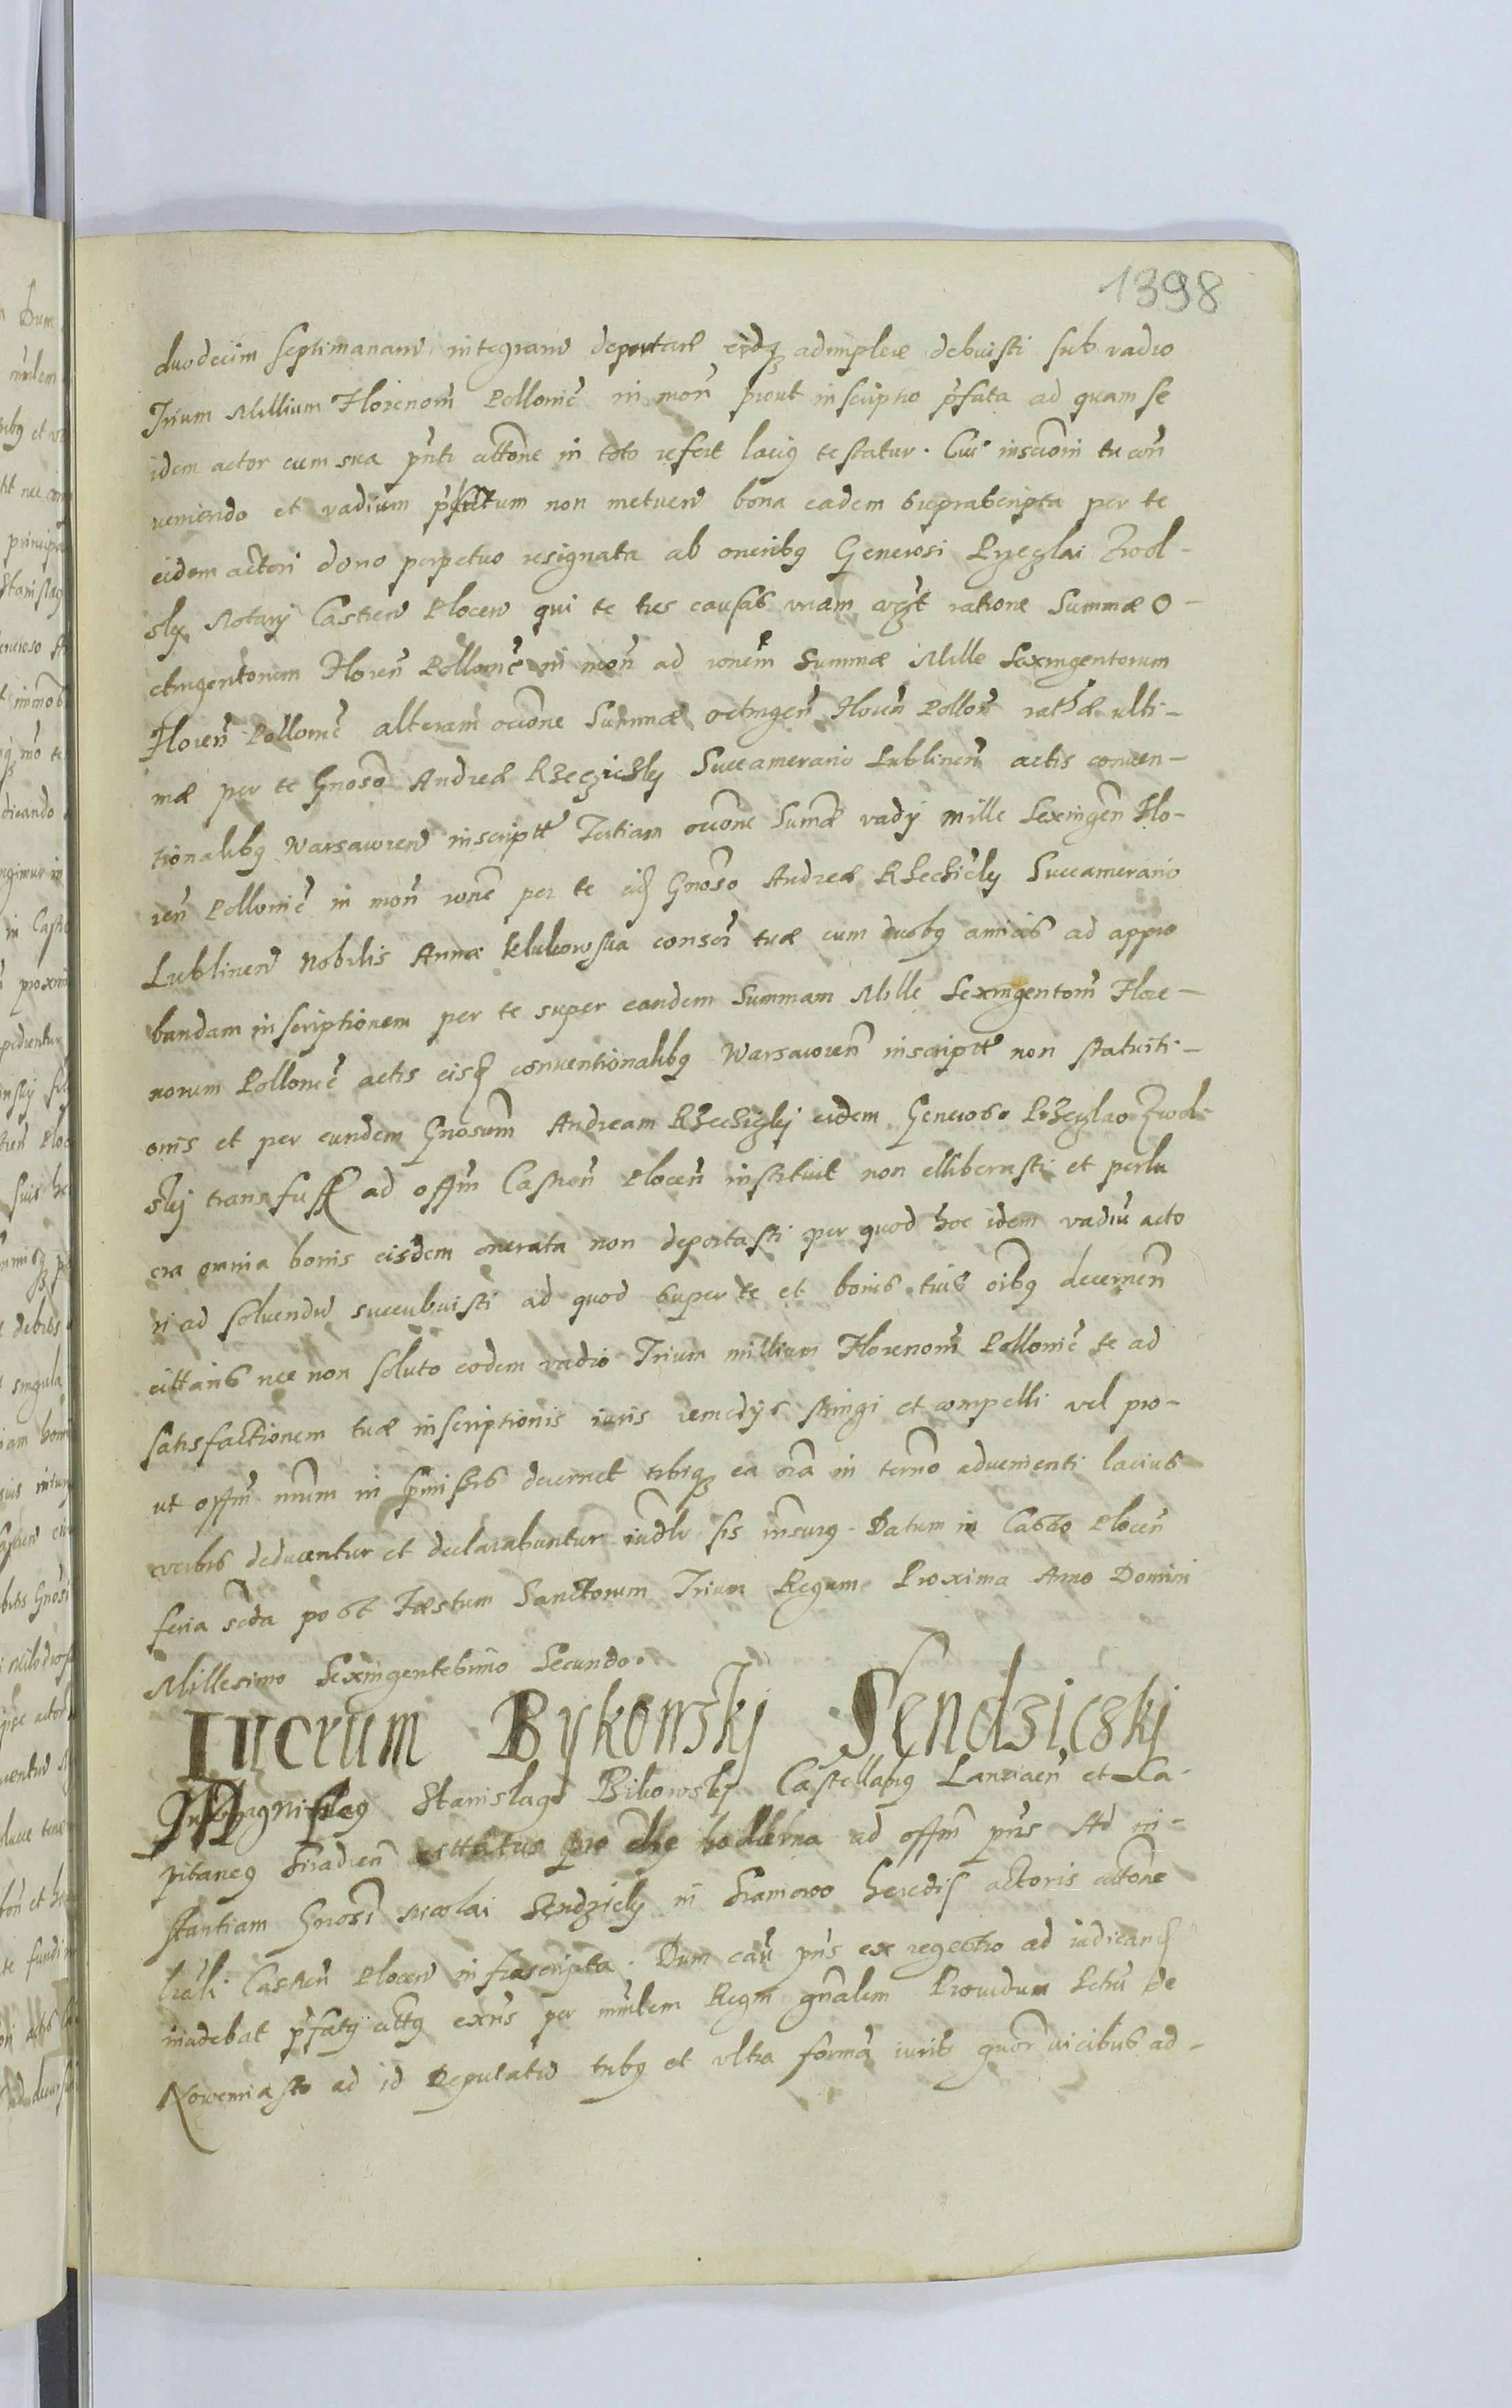 1398
duodecim septimanarũ integrarũ deportare eidq adimplere debuisti sub vadio
Trium Millium Florenorũ Pollonic̃ in mon̄ prout inscriptio p̄fata ad quam se
idem actor cum sua pn̄ti cittōne in toto refert lacig testatur. Cui inscrōni tu con̄
ueniendo et vadium non metuen̄ bona eadem suprascripta per te
eidem actori dono perpetuo resignata ab oneribg Generosi Przeczlai Zwol-
sky Notarij Castren̄ Plocen̄ qui te tres causas vnam ratione Summæ O-
ctingentorum Floren̄ Pollonic̃ in mon̄ ad ronem̄ Summæ Mille Sexingentorum
Floren̄ Pollonic̃ alteram occōne Summæ octingen̄ Floren̄ Pollon̄ rathæ ulti-
mæ per te Gnoso Andreæ Rzeczicky Succamerario Lublinen̄ actis conuen-
tionalibg Warsauien̄ inscriptæ Tertiam occōne Sumæ vadij mille Sexingen̄ Flo-
ren̄ Pollonic̃ in mon̄ ronẽ per te eid Gnoso Andreæ Rzeczicky Succamerario
Lublinen̄ Nobilis Annæ Klukowska consor̄ tuæ cum duobg amicis ad appro
bandam inscriptionem per te super eandem Summam Mille Sexingentorũ Flore-
norum Pollonic̃ actis eisd conuentionalibg Warsauien̄ inscriptæ non statuiti-
onis et per eundem Gnosum̄ Andream Rzeczicky eidem Generoso Przeczlao Zwol-
skij transfuss ad offm̄ Castren̄ Plocen̄ instituit non elliberasti et perlu
cra omnia bonis eisdem onerata non deportasti per quod hoc idem vadiũ acto
ri ad soluendũ succubuisti ad quod super te et bonis tuis oĩbg decernen̄
cittaris nec non soluto eodem vadio Trium millium Florenorũ Pollonic̃ te ad
satisfactionem tuæ inscriptionis iuris remedijs stringi et compelli vel pro-
ut offm̄ nrũm in p̄missis decernet tibiq ea oĩa in termō aduenienti lacius
verbis deducentur et declarabuntur iudlr sis Datum in Castro Plocen̄
feria scda post Fæstum Sanctorum Trium Regum Proxima Anno Domini
Millesimo Sexingentesimo Secundo.
Lucrum Bykowskj Sendziczkj
Magnificg Stanislag Bikowsky Castellang Lancicien̄ et Ca-
pitaneg Siradien̄ cittatus pro die hodierna ad offm̄ pn̄s Ad in-
stantiam Gnosi Nicolai Sendzicky in Sramowo heredis actoris cittōne
lrãli Castren̄ Plocen̄ infrascripta. Dum caũ pn̄s ex regestro ad iudicand
inadebat p̄fatg attg exn̄s per mn̄lem Regni gn̄alem Prouidum de
Nowemiasto ad id Deputatũ tribg et vltra formã iuris quor̄ vicibus ad-